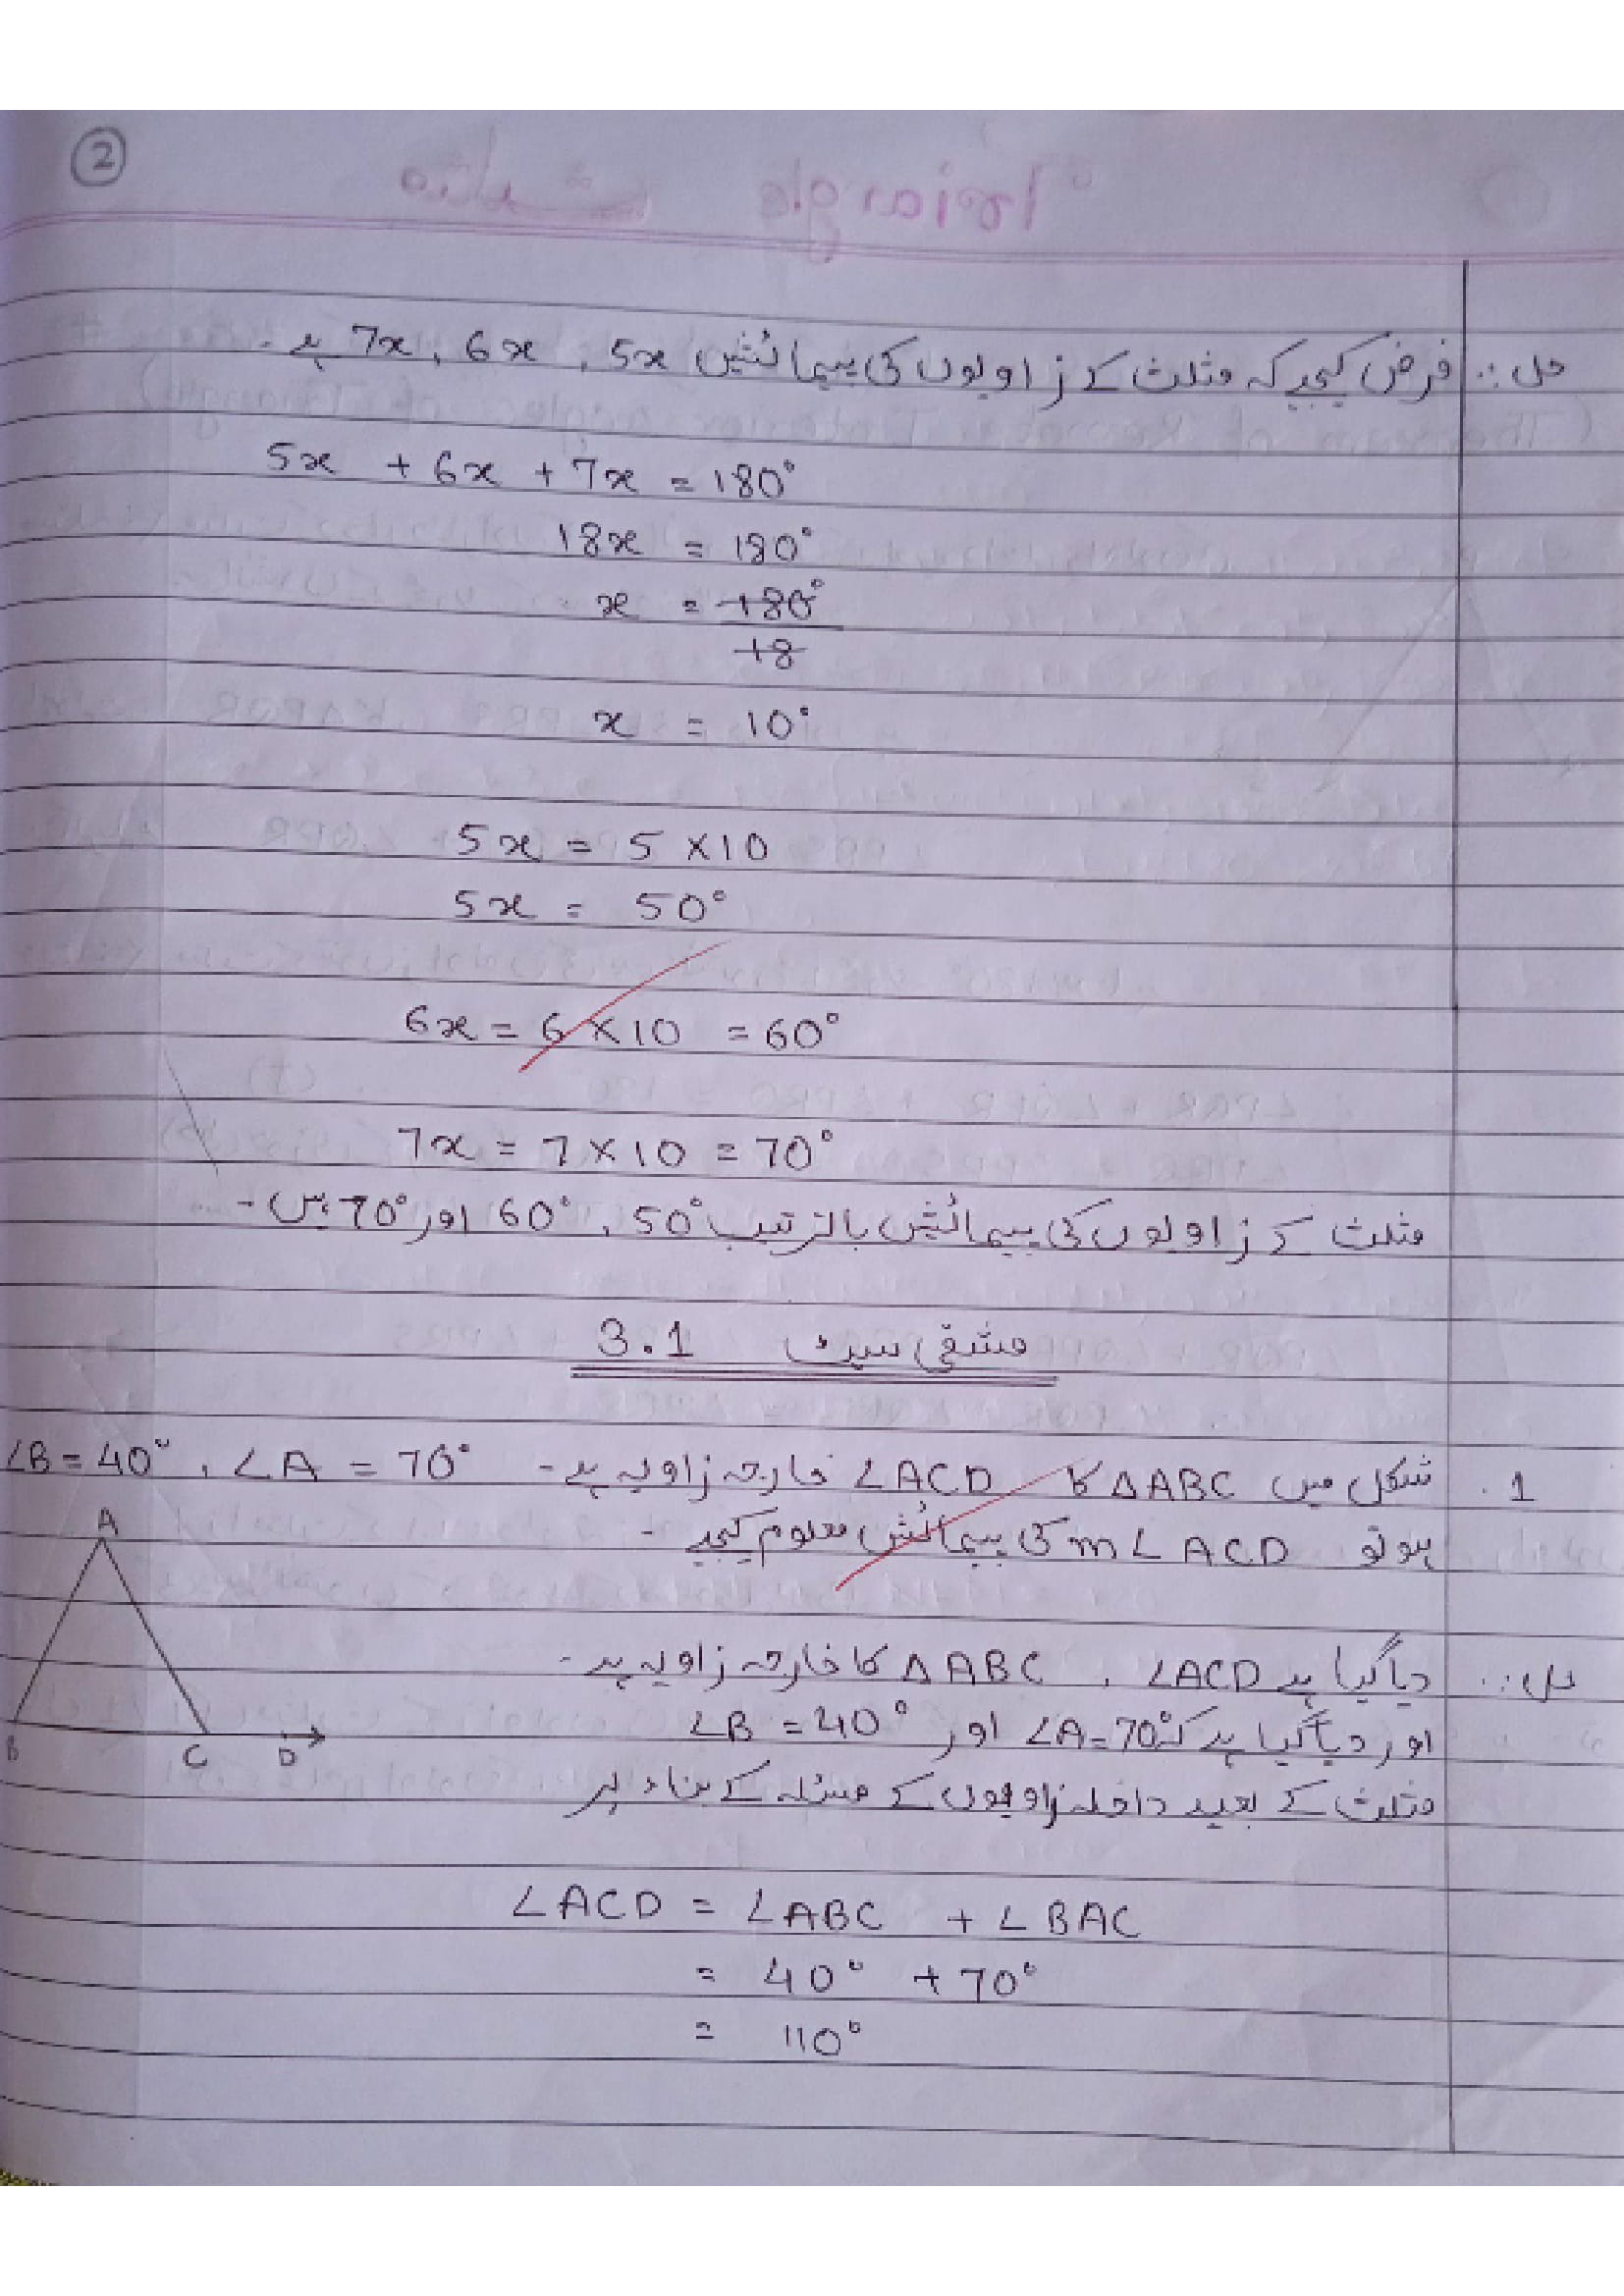 2
حل:۔ فرض کیجیے کہ مثلث کے زاویوں کی پیمائشیں 5x ، 6x ، 7x ہے۔
5x + 6x + 7x = 180°
18x = 180°
x = 180°
18
x = 10°
5x = 5 × 10
5x = 50°
6x = 6 × 10 = 60°
7x = 7 × 10 = 70°
مثلث کے زاویوں کی پیمائشیں بالترتیب 50° ، 60° اور 70° ہیں۔
مشقی سیٹ 3.1
1. شکل میں ∆ABC کا ∠ACD خارجہ زاویہ ہے۔ ∠A = 70° ، ∠B = 40°
ہو تو m∠ACD کی پیمائش معلوم کیجیے۔
A
B
C
D
حل:۔ دیا گیا ہے ∠ACD ، ∆ABC کا خارجہ زاویہ ہے۔
اور دیا گیا ہے کہ ∠A = 70° اور ∠B = 40°
مثلث کے بعید داخلہ زاویوں کے مسئلہ کے بناء پر
∠ACD = ∠ABC + ∠BAC
= 40° + 70°
= 110°